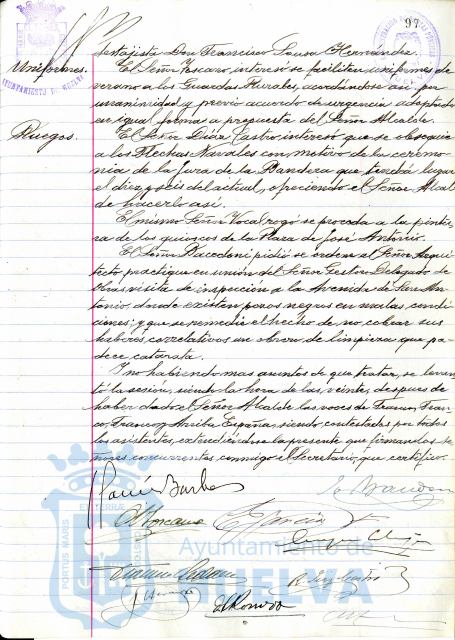 97
tentajista Don Francisco Sousa Hernández.
Uniformes.
El Señor Toscano, interesó se faciliten uniformes de
verano a los Guardas Rurales, acordándose así por
unanimidad y previo acuerdo de urgencia adoptado
en igual forma a propuesta del Señor Alcalde.
Ruegos.
El Señor Díaz Castro interesó que se obsequie
a los Flechas Navales con motivo de la ceremo-
nia de la Jura de la Bandera que tendrá lugar
el diez y seis del actual, ofreciendo el Señor Alcalde
hacerlo así.
El mismo Señor Vocal rogó se proceda a la pintu-
ra de los quioscos de la Plaza de José Antonio.
El Señor pidió se ordene al Señor Arqui-
tecto, practique en unión del Señor Gestor Delegado de
Obras, visita de inspección a la Avenida de San An-
tonio, donde existen pozos negros en malas condi-
ciones; y que se remedie el hecho de no cobrar sus
haberes correlativos un obrero de limpieza que pa-
dece catarata.
Y no habiendo mas asuntos de que tratar, se levan-
tó la sesión, siendo la hora de las veinte, despues de
haber dado el Señor Alcalde las voces de Franco, Fran-
co, Franco y Arriba España, siendo contestadas por todos
los asistentes, extendiéndose la presente que firman los se-
ñores concurrentes conmigo el Secretario, que certifico.
Ayuntamiento de
HUELVA
PORTUS MARIS